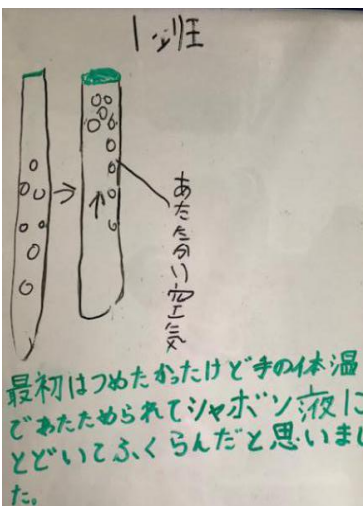 1班
あたたかい空気
最初はつめたかったけど手の体温
であたためられてシャボン液に
とどいてふくらんだと思いまし
た。